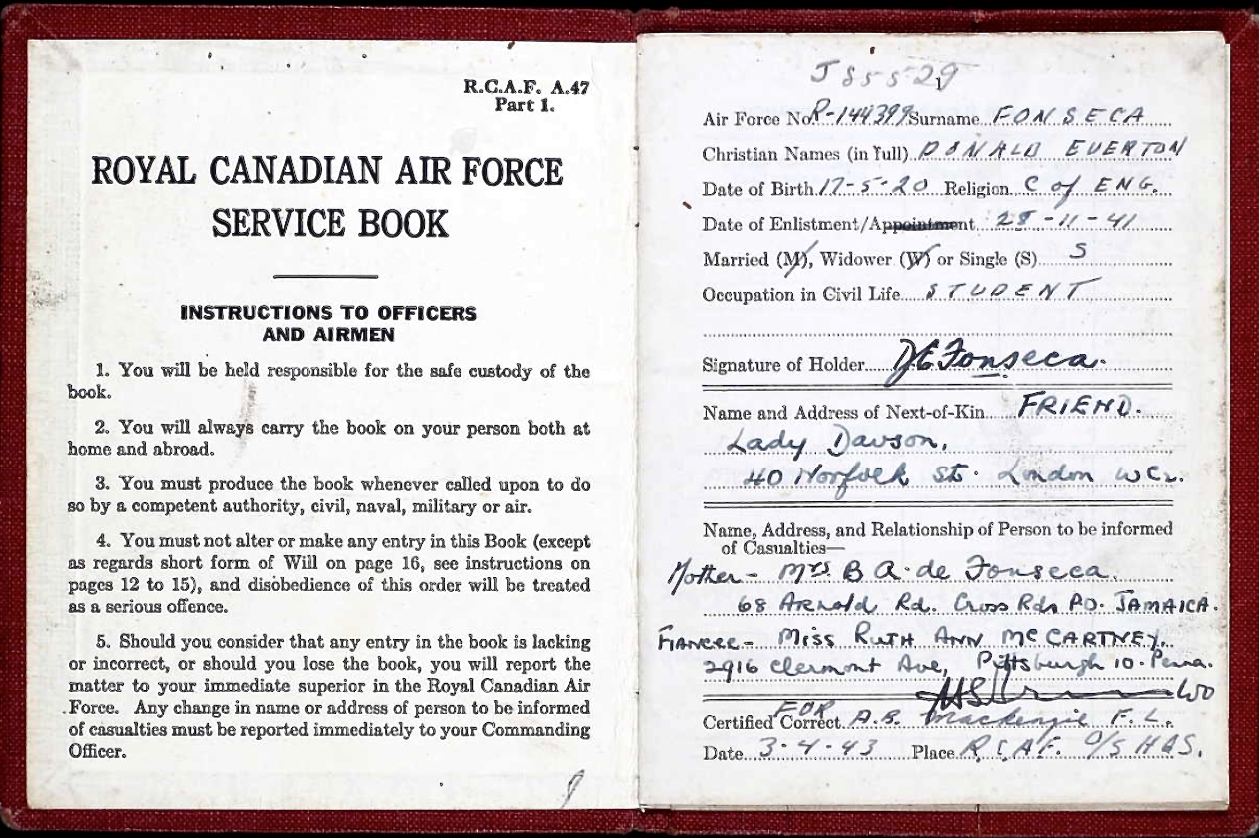 R.C.A.F. A.47
Part 1.
ROYAL CANADIAN AIR FORCE
SERVICE BOOK
INSTRUCTIONS TO OFFICERS
AND AIRMEN
1. You will be held responsible for the safe custody of the
book.
2. You will always carry the book on your person both at
home and abroad.
3. You must produce the book whenever called upon to do
so by a competent authority, civil, naval, military or air.
4. You must not alter or make any entry in this Book (except
as regards short form of Will on page 16, see instructions on
pages 12 to 15), and disobedience of this order will be treated
as a serious offence.
5. Should you consider that any entry in the book is lacking
or incorrect, or should you lose the book, you will report the
matter to your immediate superior in the Royal Canadian Air
Force. Any change in name or address of person to be informed
of casualties must be reported immediately to your Commanding
Officer.
J85529
Air Force No. R-144399 Surname FONSECA
Christian Names (in full) DONALD EVERTON
Date of Birth 17-5-20 Religion C of ENG.
Date of Enlistment/Appointment 28-11-41
Married (M), Widower (W) or Single (S) S
Occupation in Civil Life STUDENT
Signature of Holder DEFonseca.
Name and Address of Next-of-Kin FRIEND.
Lady Davson,
40 Norfolk St. London WC2.
Name, Address, and Relationship of Person to be informed
of Casualties—
Mother - Mrs. B A. de Fonseca.
68 Arnold Rd. Cross Rds PO. JAMAICA.
Fiancee - Miss RUTH ANN MCCARTNEY,
2916 Clermont Ave, Pittsburgh 10. Penna.
WO
FOR
Certified Correct A.B. Mackenzie F.L.
Date 3-4-43 Place R.C.A.F. O/S HQS.